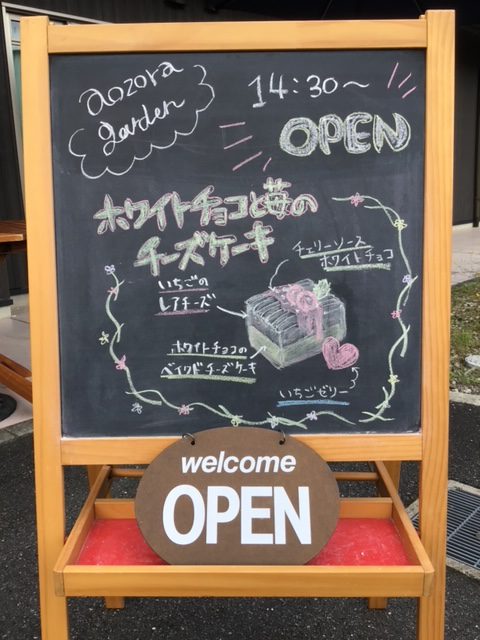 aozora
garden
14:30～
OPEN
ホワイトチョコと苺の
チーズケーキ
チェリーソース
ホワイトチョコ
いちごの
レアチーズ
ホワイトチョコの
ベイクドチーズケーキ
いちごゼリー
welcome
OPEN